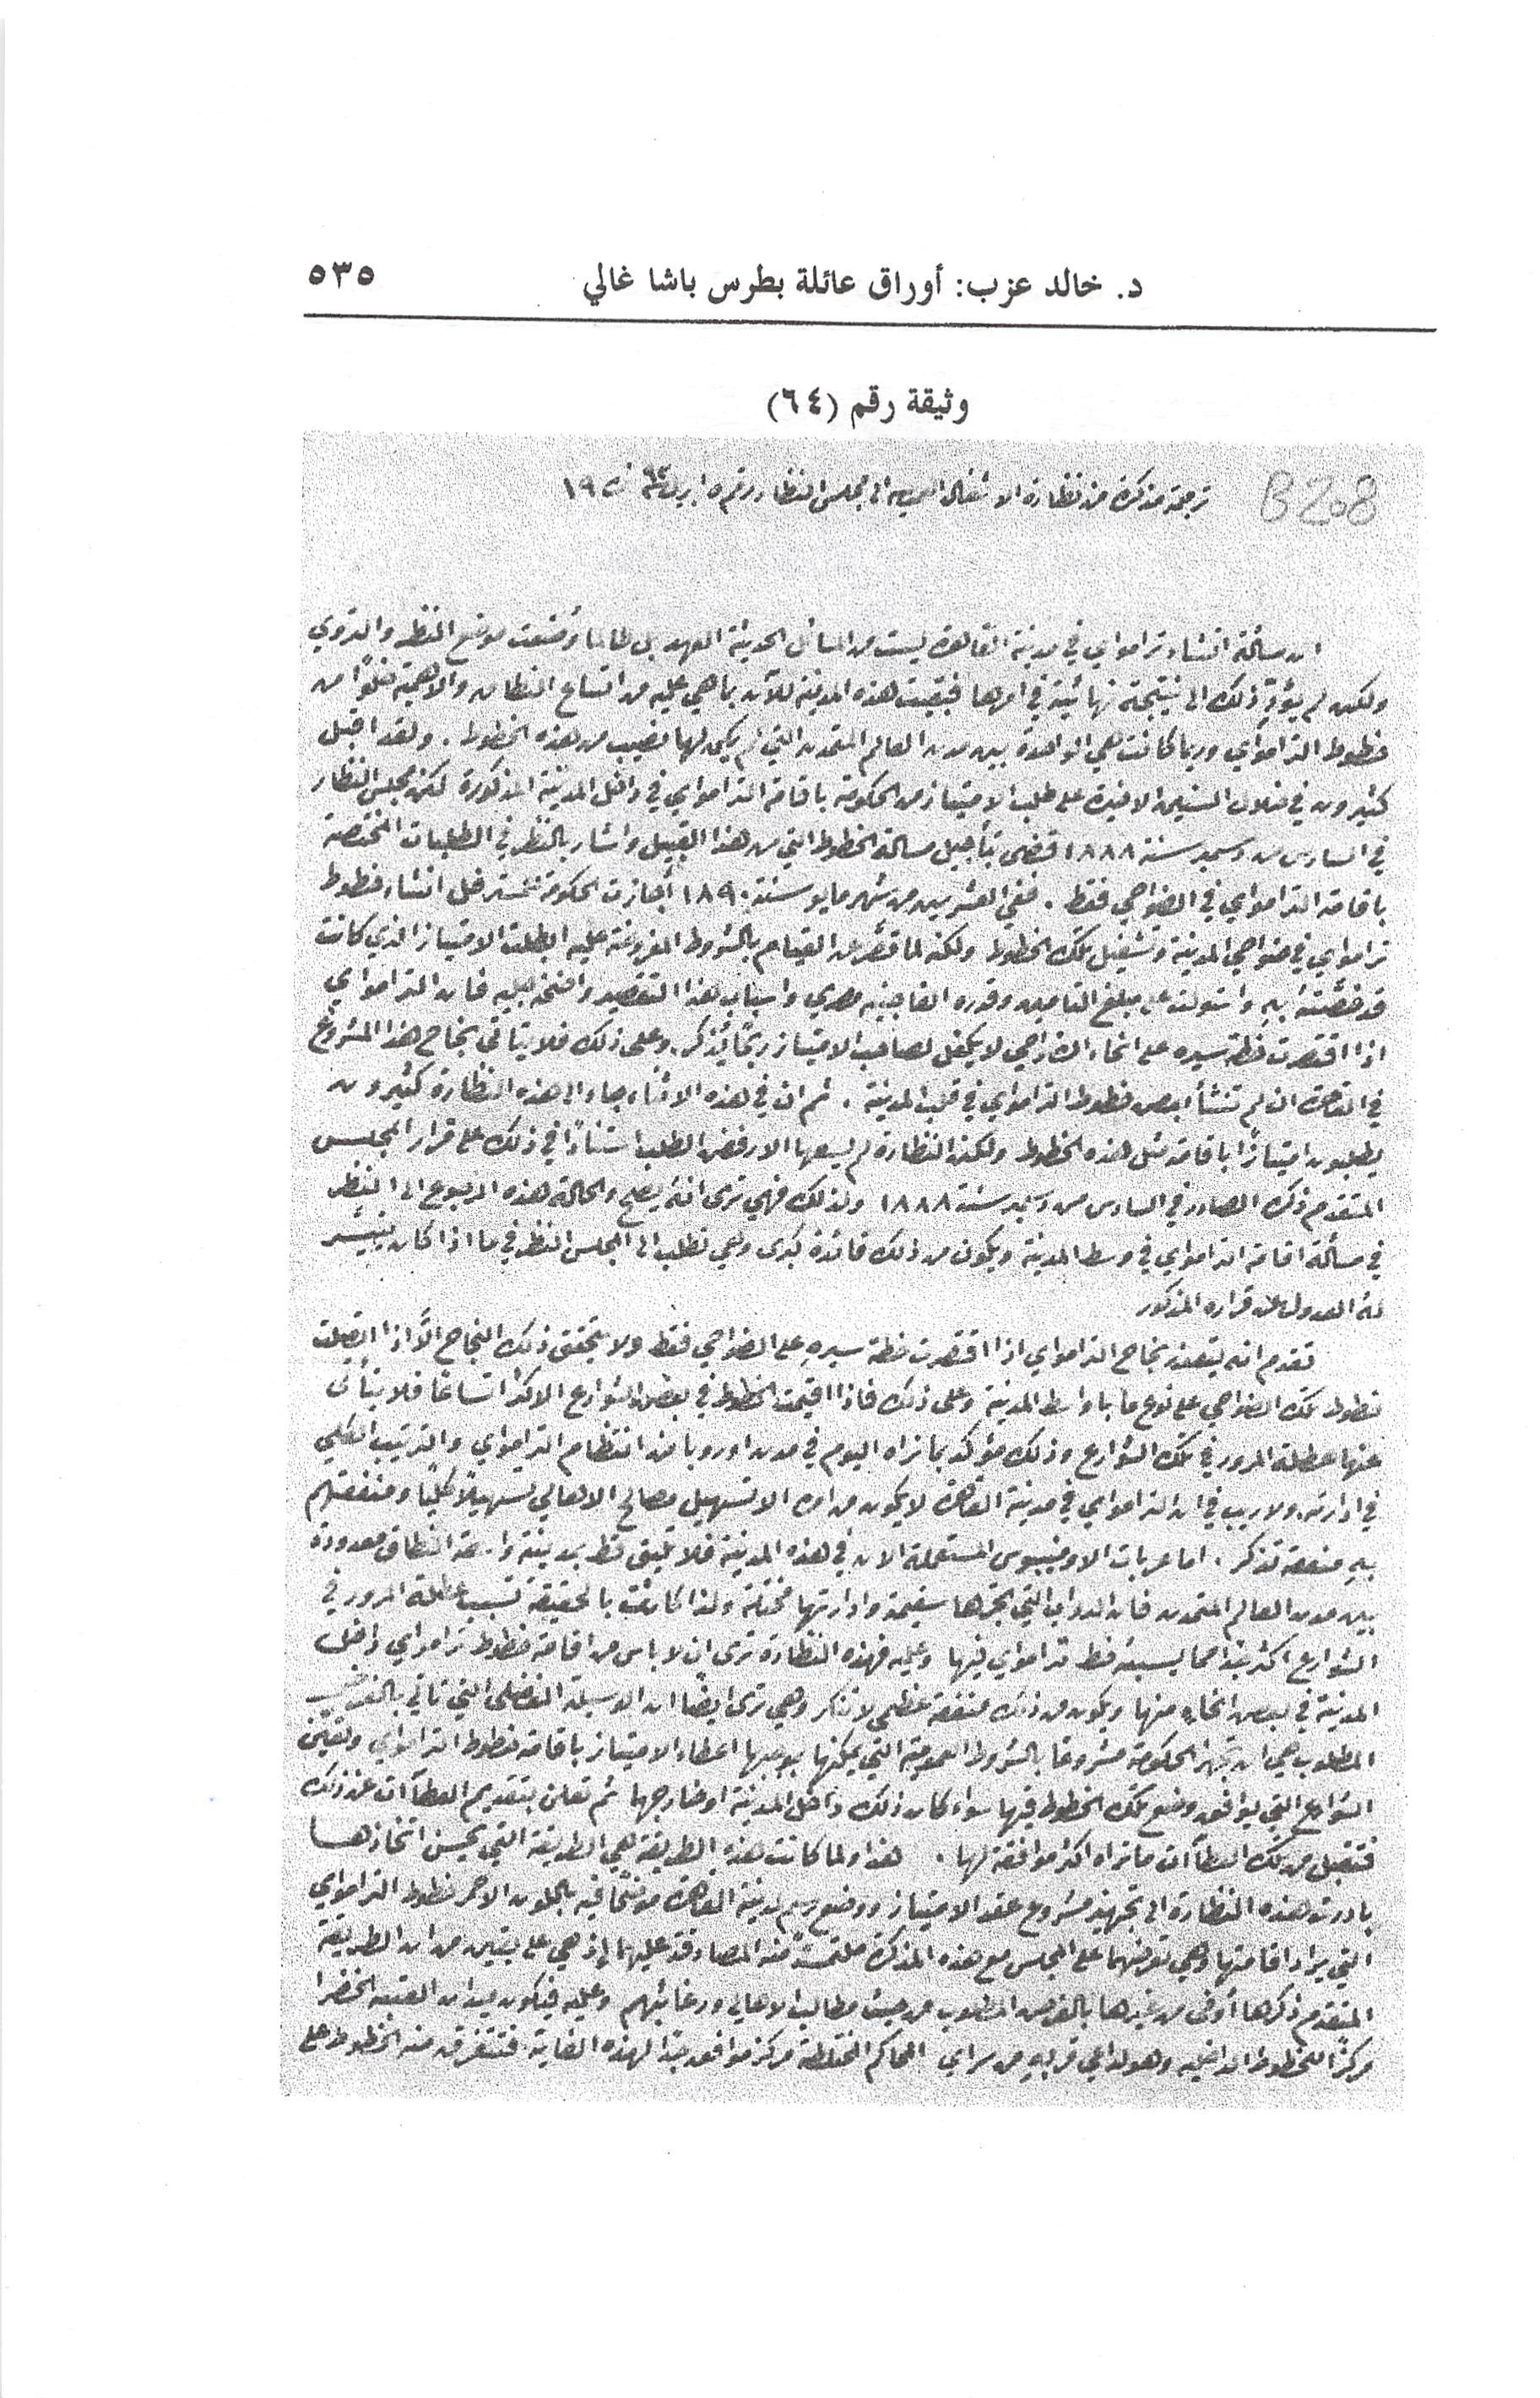 د. خالد عزب: أوراق عائلة بطرس باشا غالي ٥٣٥
وثيقة رقم (٦٤)
B208
ترجمة مذكرة من نظارة الاشغال العمومية الى مجلس النظار رقم ٥ ابريل ٩٣ نمرة ١٩
ان مسألة انشاء ترامواي في مدينة القاهرة ليست من المسائل الحديثة العهد بل لطالما وُضعت موضع النظر والتروي
ولكن لم يؤدِّ ذلك الى نتيجة نهائية في امرها فبقيت هذه المدينة للآن بما هي عليه من اتساع النطاق والاهمية خلوًا من
خطوط الترامواي وربما كانت هي الواحدة بين مدن العالم المتمدن التي لم يكن لها نصيب من هذه الخطوط. ولقد اقبل
كثيرون في خلال السنين الاخيرة على طلب الامتياز من الحكومة باقامة الترامواي في داخل المدينة المذكورة لكن مجلس النظار
في السادس من دسمبر سنة ١٨٨٨ قضى بتأجيل مسألة الخطوط التي من هذا القبيل واشار بالنظر في الطلبات المختصة
باقامة الترامواي في الضواحي فقط. ففي العشرين من شهر مايو سنة ١٨٩٠ أجازت الحكومة انشاء خطوط
ترامواي في ضواحي المدينة وتشغيل تلك الخطوط ولكنه لما قصَّر عن القيام بالشروط المفروضة عليه ابطلت الامتياز الذي كانت
قد خصَّته به واستولت على مبلغ التامين وقدره الفا جنيه مصري واسباب هذا التقصير واضحة جلية فان الترامواي
اذا اقتصرت خطة سيره على انحاء الضواحي لا يكفل لصاحب الامتياز ربحًا يُذكر وعلى ذلك فلا يتاتى نجاح هذا المشروع
في القاهرة ان لم تنشأ بعض خطوط الترامواي في قلب المدينة. ثم ان في هذه الاثناء جاء الى هذه النظارة كثيرون
يطلبون امتيازًا باقامة مثل هذه الخطوط ولكن النظارة لم يسعها الا رفض الطلب استنادًا في ذلك على قرار المجلس
المتقدم ذكره الصادر في السادس من دسمبر سنة ١٨٨٨ ولذلك فهي ترى انه يصلح والحالة هذه الرجوع الى النظر
في مسألة اقامة الترامواي في وسط المدينة ويكون من ذلك فائدة كبرى وهي تطلب الى المجلس النظر في ما اذا كان يتيسر
له العدول عن قراره المذكور
تقدم انه يتعذر نجاح الترامواي اذا اقتصرت خطة سيره على الضواحي فقط ولا يتحقق ذلك النجاح الَّا اذا اتصلت
خطوط تلك الضواحي على نوع ما باواسط المدينة وعلى ذلك فاذا اقيمت الخطوط في بعض الشوارع الاكثر اتساعًا فلا يتأتى
عنها عطلة المرور في تلك الشوارع وذلك مؤكد بما نراه اليوم في مدن اوروبا من انتظام الترامواي والترتيب الكلي
في ادارته ولا ريب في ان الترامواي في مدينة القاهرة لا يكون من امره الا تسهيل مصالح الاهالي تسهيلًا كليًا ومنفعتهم
به منفعة تذكر. اما عربات الاومنيبوس المستعملة الان في هذه المدينة فلا تليق قط بمدينة واسعة النطاق معدودة
بين مدن العالم المتمدن فان الدواب التي تجرها سقيمة وادارتها مختلة ولذا كانت بالحقيقة تسبب عطلة المرور في
الشوارع اكثر جدا مما يسببه خط ترامواي فيها وعليه فهذه النظارة ترى ان لا باس من اقامة خطوط ترامواي داخل
المدينة في بعض انحاءٍ منها ويكون من ذلك منفعة عظمى لا تنكر وهي ترى ايضًا ان الوسيلة الفضلى التي تاتي بالغرض
المطلوب هي ان تجهز الحكومة مشروعًا بالشروط العمومية التي يمكنها بموجبها اعطاء الامتياز باقامة خطوط الترامواي وتعيّن
الشوارع التي يوافق وضع تلك الخطوط فيها سواء كان ذلك داخل المدينة او خارجها ثم تعلن بتقديم العطآآت عن ذلك
فتقبل من تلك العطآآت ما تراه اكثر موافقة لها. هذا ولما كانت هذه الطريقة هي الطريقة التي يحسن اتخاذها
بادرت هذه النظارة الى تجهيز مشروع عقد الامتياز ووضع رسم لمدينة القاهرة موضحًا فيه باللون الاحمر خطوط الترامواي
التي يراد اقامتها وهي تعرضهما على المجلس مع هذه المذكرة ملتمسةً منه المصادقة عليهما اذ هي على يقين من ان الطريقة
المتقدم ذكرها أوفى من غيرها بالغرض المطلوب من حيث مطالب الاهالي ورغائبهم وعليه فيكون ميدان العتبه الخضرا
مركزًا للخطوط الداخلية وهو لداعي قربه من سراي المحاكم المختلطة مركز موافق جدًا لهذه الغاية فتتفرق منه الخطوط على